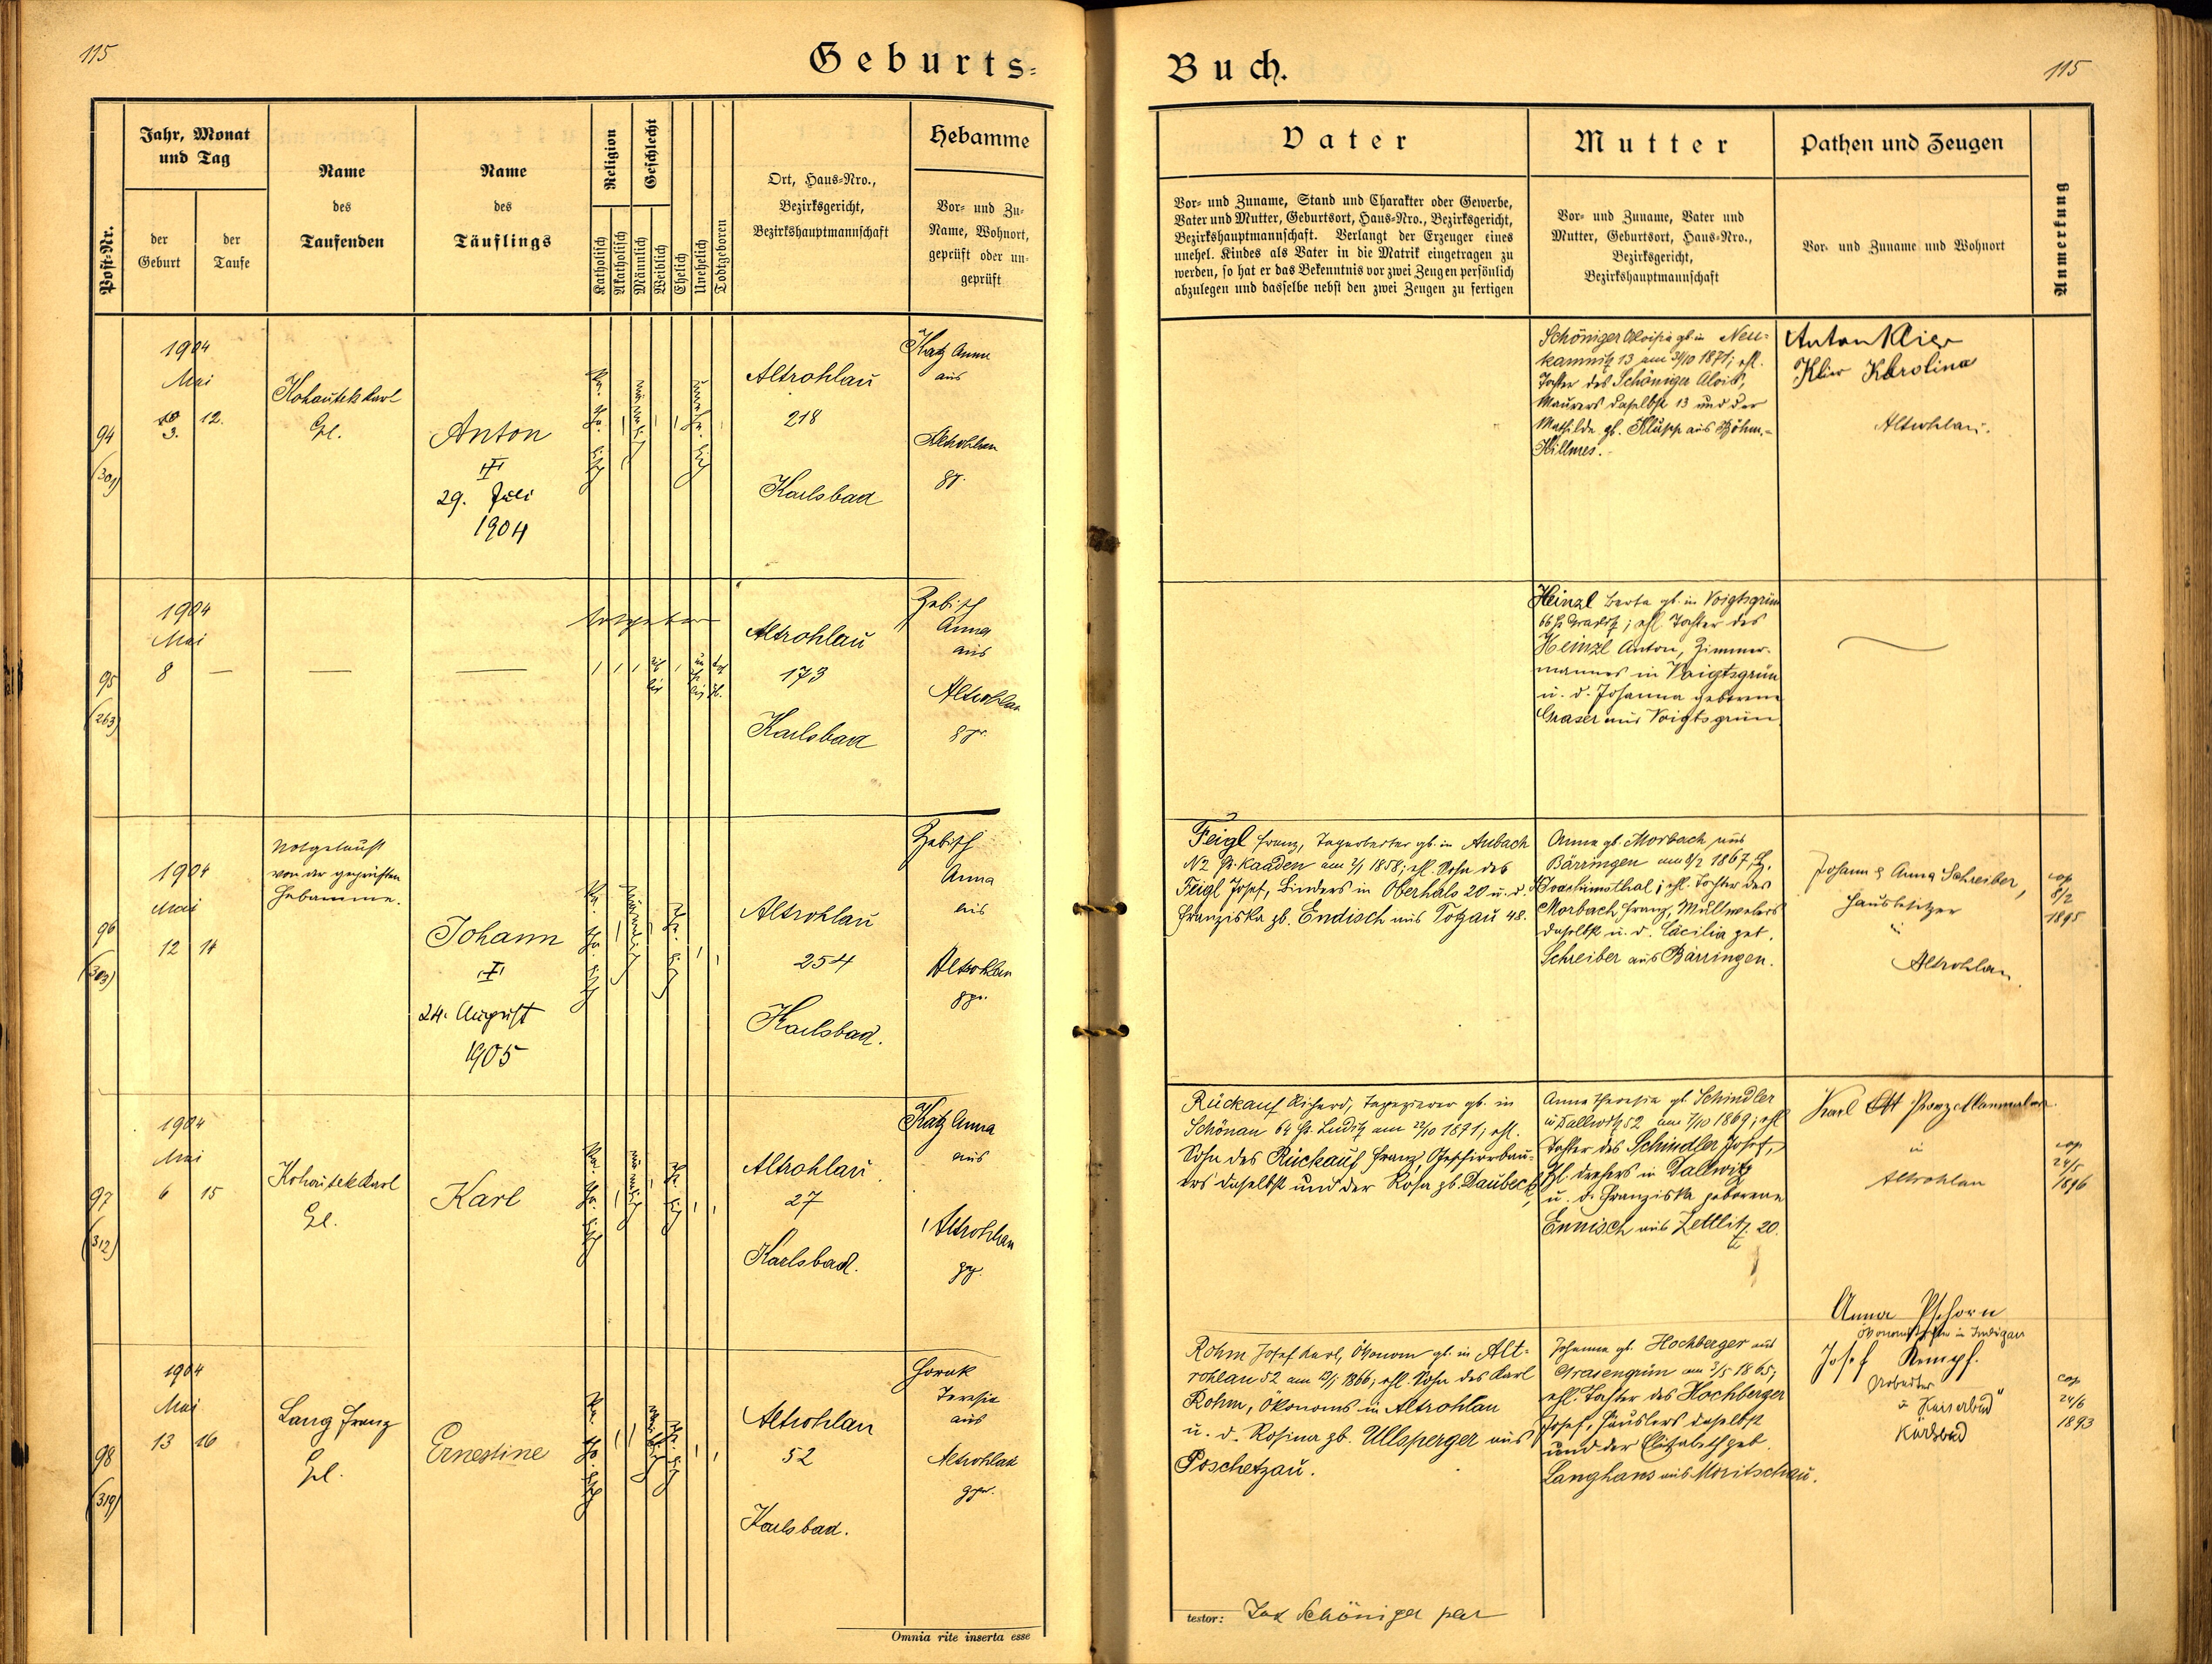 115
Geburts-
Post-Nr.
Jahr, Monat
und Tag
der
Geburt
der
Taufe
Name
des
Taufenden
Name
des
Täuflings
Religion
Katholisch
Akatholisch
Geschlecht
Männlich
Weiblich
Ehelich
Unehelich
Todtgeboren
Ort, Haus-Nro.,
Bezirksgericht,
Bezirkshauptmannschaft
Hebamme
Vor- und Zu-
Name, Wohnort,
geprüft oder un-
geprüft
94
(301)
1904
Mai
3.
12.
Kohautek Karl
Anton
29. Juli
1904
katholisch
männlich
unehelich
Altrohlau
218
Karlsbad
Katz Anna
aus
Altrohlau
95
(263)
1904
Mai
8
—
—
—
totgeboren
Altrohlau
173
Karlsbad
Zebisch
Anna
aus
Altrohlau
gpr.
96
(303)
1904
Mai
12
14
Notgetauft
von der geprüften
Hebamme.
Johann
24. August
1905
katholisch
männlich
ehelich
Altrohlau
254
Karlsbad.
Zebisch
Anna
aus
Altrohlau
gpr.
97
(312)
1904
Mai
6
15
Kohautek Karl
Karl
katholisch
männlich
ehelich
Altrohlau
27
Karlsbad.
Katz Anna
aus
Altrohlau
98
(319)
1904
Mai
13
16
Lang Franz
Ernestine
katholisch
weiblich
ehelich
Altrohlau
52
Karlsbad.
Teresia
aus
Altrohlau
gpr.
Omnia rite inserta esse
Buch.
115
Vater
Vor- und Zuname, Stand und Charakter oder Gewerbe,
Vater und Mutter, Geburtsort, Haus-Nro., Bezirksgericht,
Bezirkshauptmannschaft. Verlangt der Erzeuger eines
unehel. Kindes als Vater in die Matrik eingetragen zu
werden, so hat er das Bekenntnis vor zwei Zeugen persönlich
abzulegen und dasselbe nebst den zwei Zeugen zu fertigen
Mutter
Vor- und Zuname, Vater und
Mutter, Geburtsort, Haus-Nro.,
Bezirksgericht,
Bezirkshauptmannschaft
Pathen und Zeugen
Vor- und Zuname und Wohnort
Anmerkung
Schöniger Aloisia gb. in Neu-
kamnitz 13 am 31/10 1871; ehl.
Tochter des Schöniger Alois,
Maurers daselbst 13 und der
Mathilde gb. Klupp aus Böhm.-
Killmes.
Anton Klier
Klier Karolina
Altrohlau.
Heinzl Berta gb. in Voigtsgrün
66 ; ehl. Tochter des
Heinzl Anton, Zimmer-
mannes in Voigtsgrün
u. d. Johanna geborene
Graser aus Voigtsgrün
Feigl Franz, Tagarbeiter gb. in Aubach
N 2 Bz. Kaaden am 2/1 1858; ehl. Sohn des
Feigl Josef, Binders in Oberhals 20 u. d.
Franziska gb. Endisch aus Totzau 48.
Anna gb. Morbach aus
Bärringen am 8/2 1867, Bz.
Joachimsthal; ehl. Tochter des
Morbach Franz,
daselbst u. d. Cäcilia geb.
Schreiber aus Bärringen.
Johann & Anna Schreiber,
Hausbesitzer
in
Altrohlau.
cop
8/2
1895
Rückauf Richard, Tapezierer gb. in
Schönau 64 Bz. Luditz am 22/10 1871; ehl.
Sohn des Rückauf Franz,
daselbst und der Rosa gb. Daubeck,
Anna Theresia gb. Schindler
in Dallwitz 52 am 7/10 1869; ehl
Tochter des Schindler Josef,
drehers in Dallwitz
u. d. Franziska geborene
Ennisch aus Zettlitz 20.
Karl Ott Porzellanmaler
in
Altrohlau
cop
24/5
1896
Rohm Josef Karl, Ökonom gb. in Alt-
rohlau 52 am 13/1 1866; ehl. Sohn des Karl
Rohm, Ökonoms in Altrohlau
u. d. Rosina gb. Ullsperger aus
Poschetzau.
Johanna gb. Hochberger aus
Grasengrün am 3/5 1865;
ehl. Tochter des Hochberger
Josef, Häuslers daselbst
und der Elisabeth geb.
Langhans aus Moritschau.
Anna Pschorn
Josef Kempf.
"Kaiserbad"
Karlsbad
cop
24/6
1893
testor: